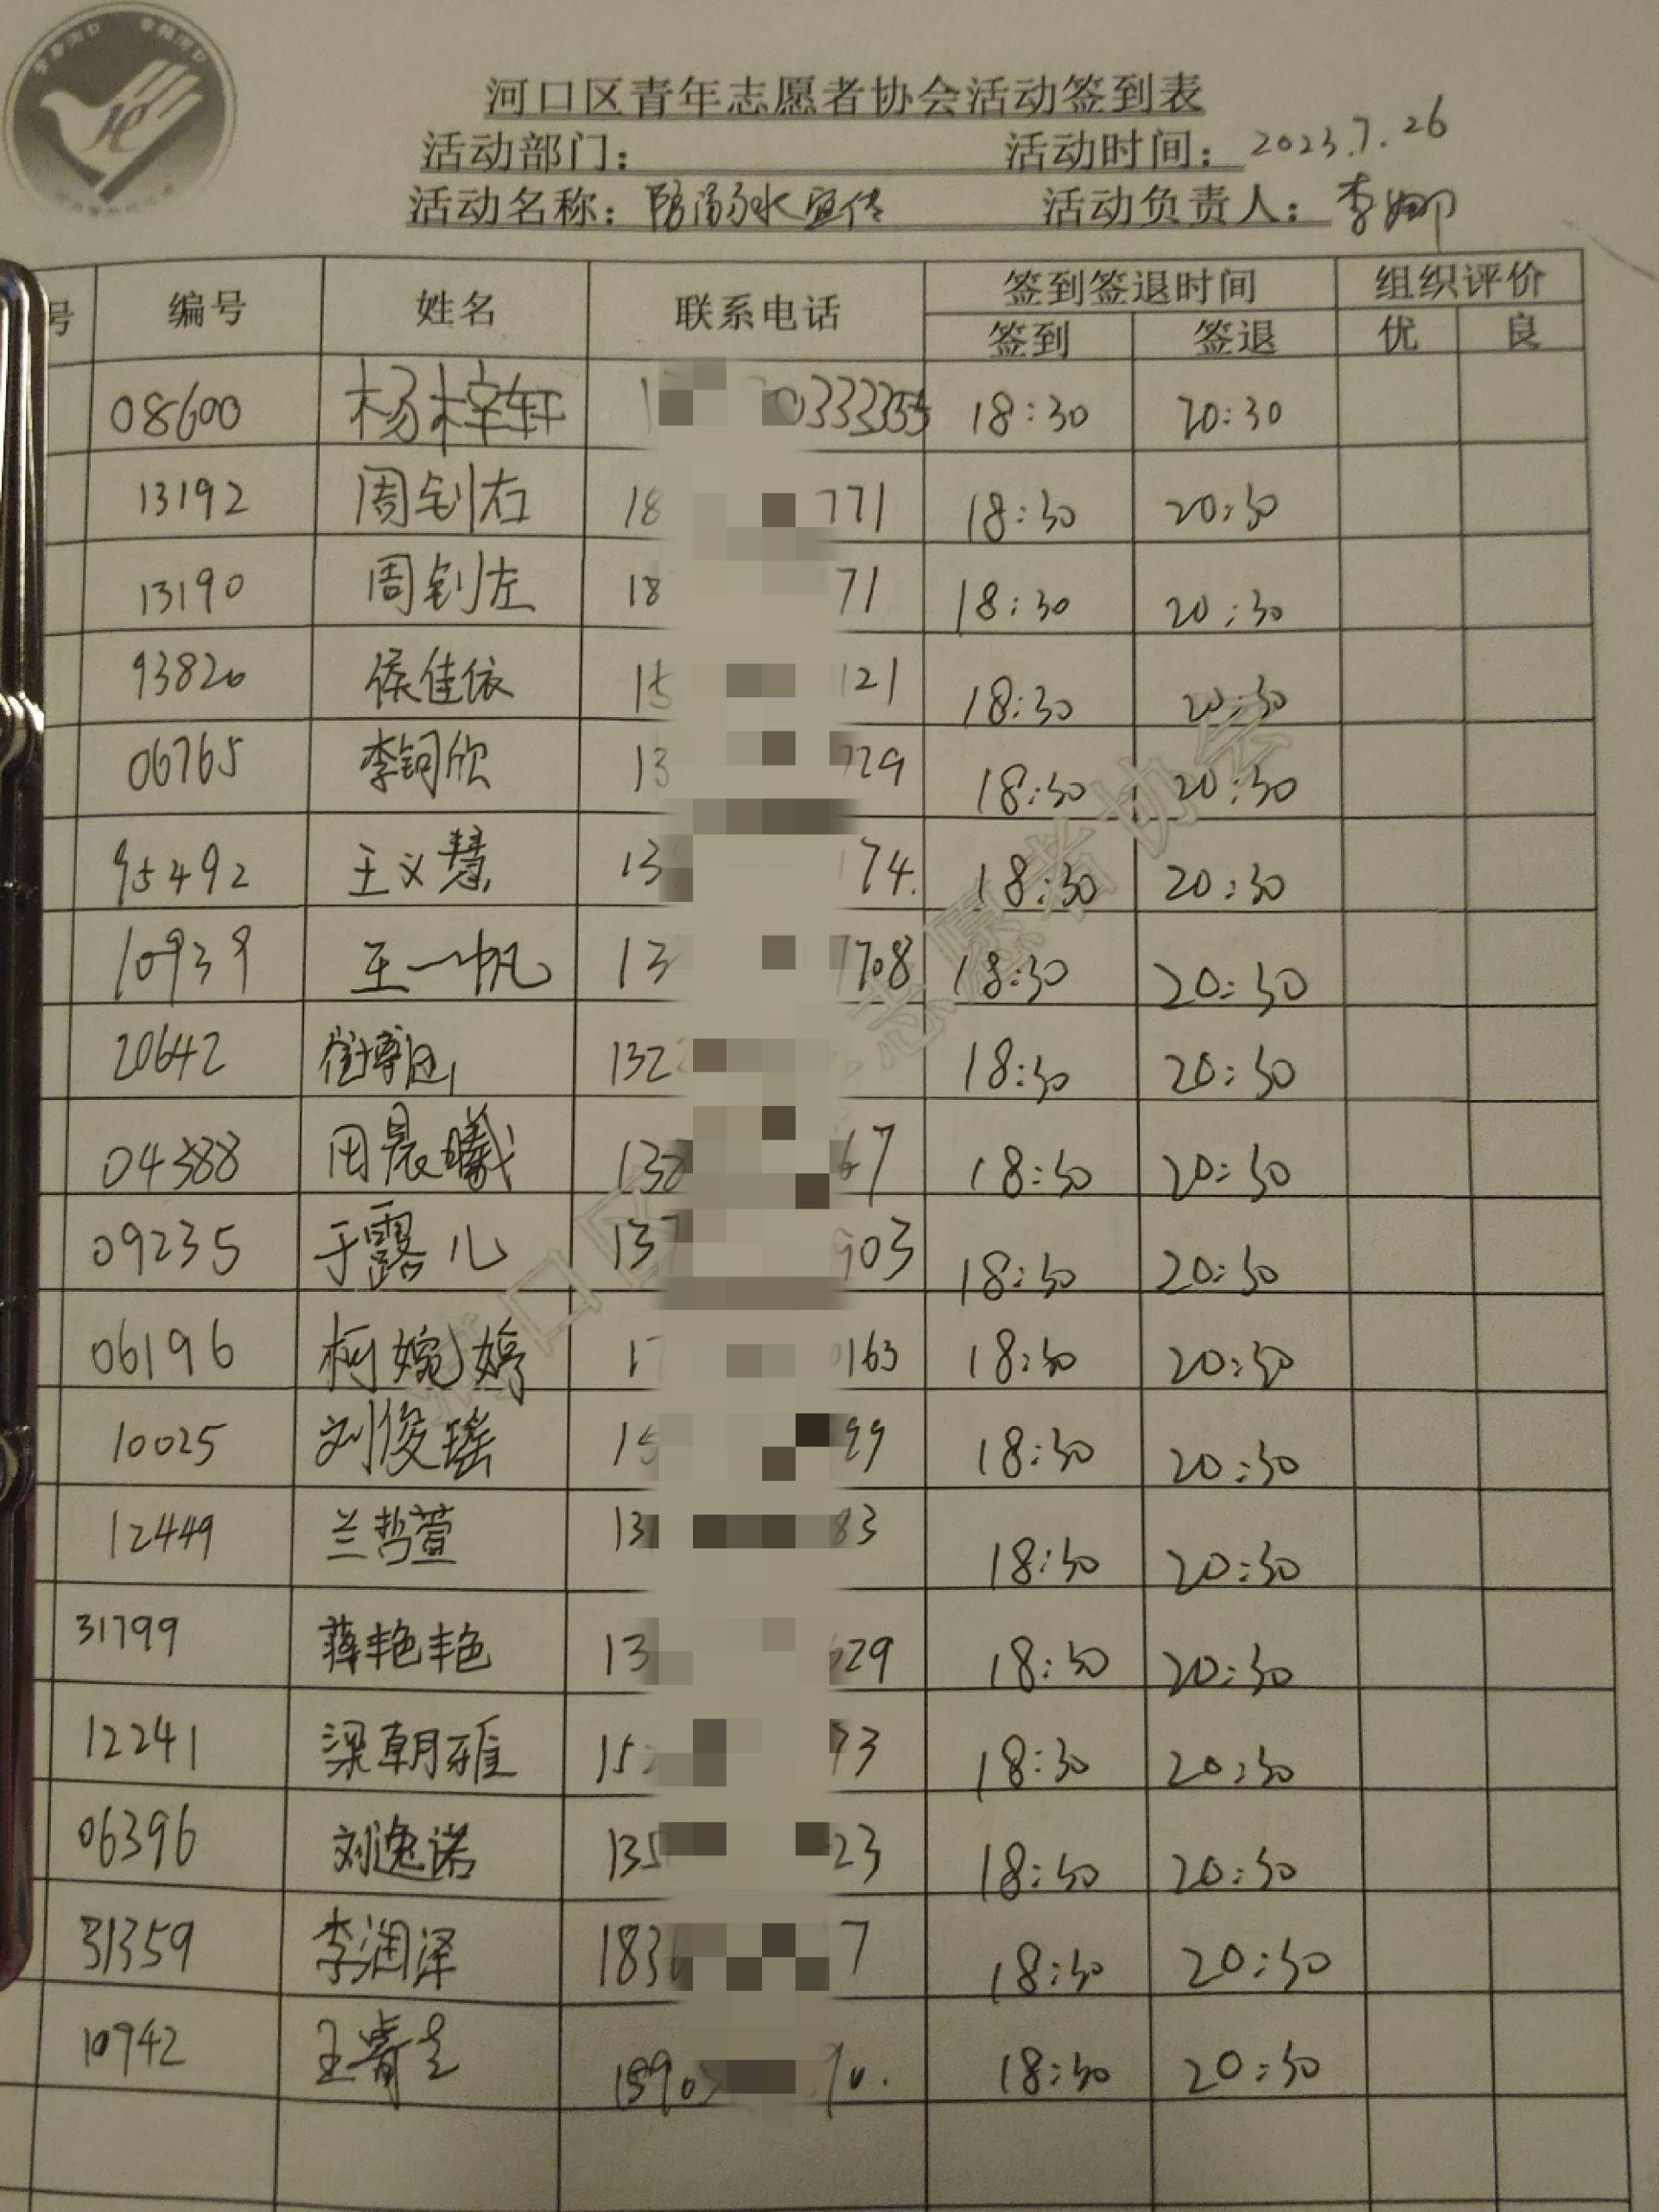 河口区青年志愿者协会活动签到表
活动部门： 活动时间：2023.7.26
活动名称：防溺水宣传 活动负责人：李娜
号 编号 姓名 联系电话 签到签退时间 组织评价
签到 签退 优 良
08600 杨梓轩 1 0333355 18:30 20:30
13192 周钊右 18 771 18:30 20:30
13190 周钊左 18 71 18:30 20:30
93820 侯佳依 15 121 18:30 20:30
06765 李钶欣 13 729 18:30 20:30
95492 王义慧 13 174. 18:30 20:30
10939 王一帆 13 1708 18:30 20:30
20642 132 18:30 20:30
04388 田晨曦 138 67 18:30 20:30
09235 于露儿 137 903 18:30 20:30
06196 柯婉婷 17 0163 18:30 20:30
10025 刘俊瑶 15 99 18:30 20:30
12449 兰哲萱 13 83 18:30 20:30
31799 蒋艳艳 13 629 18:30 20:30
12241 梁朝雅 152 93 18:30 20:30
06396 刘逸诺 135 23 18:30 20:30
31359 李润泽 183 7 18:30 20:30
10942 1590 90. 18:30 20:30
河口区 志愿者协会